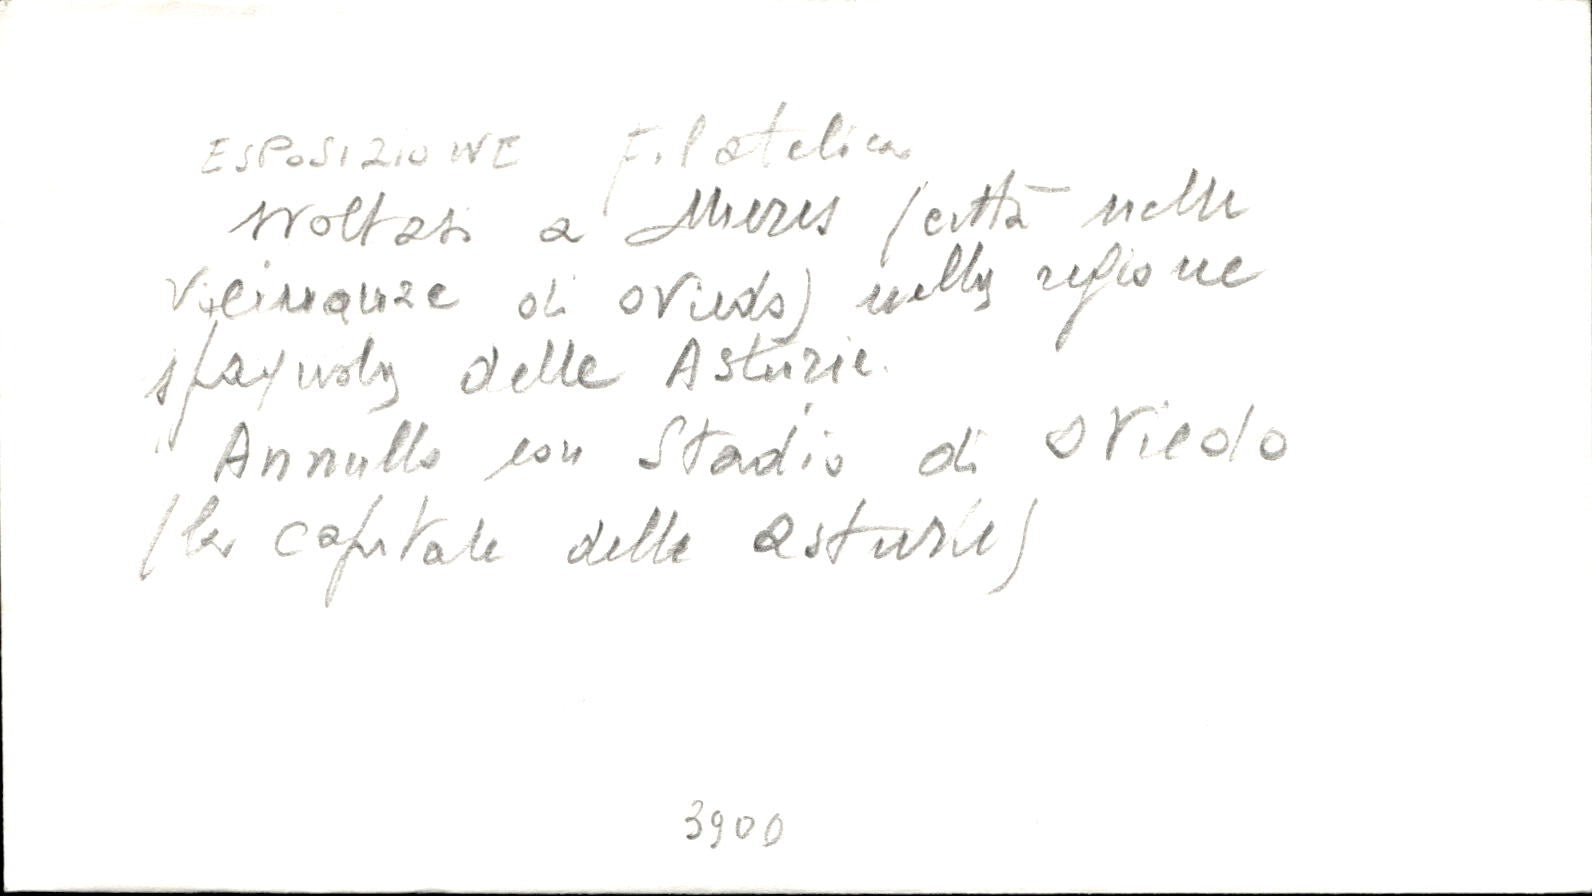 ESPOSIZIONE Filatelica
svoltasi a Mieres (città nelle
vicinanze di Oviedo) nella regione
spagnola delle Asturie.
Annullo con Stadio di Oviedo
(la capitale delle asturie)
3900